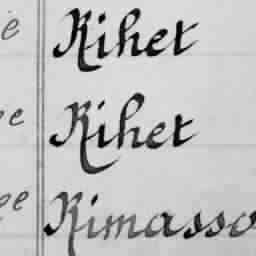 é Rihet
ee Rihet
ee Rimasso